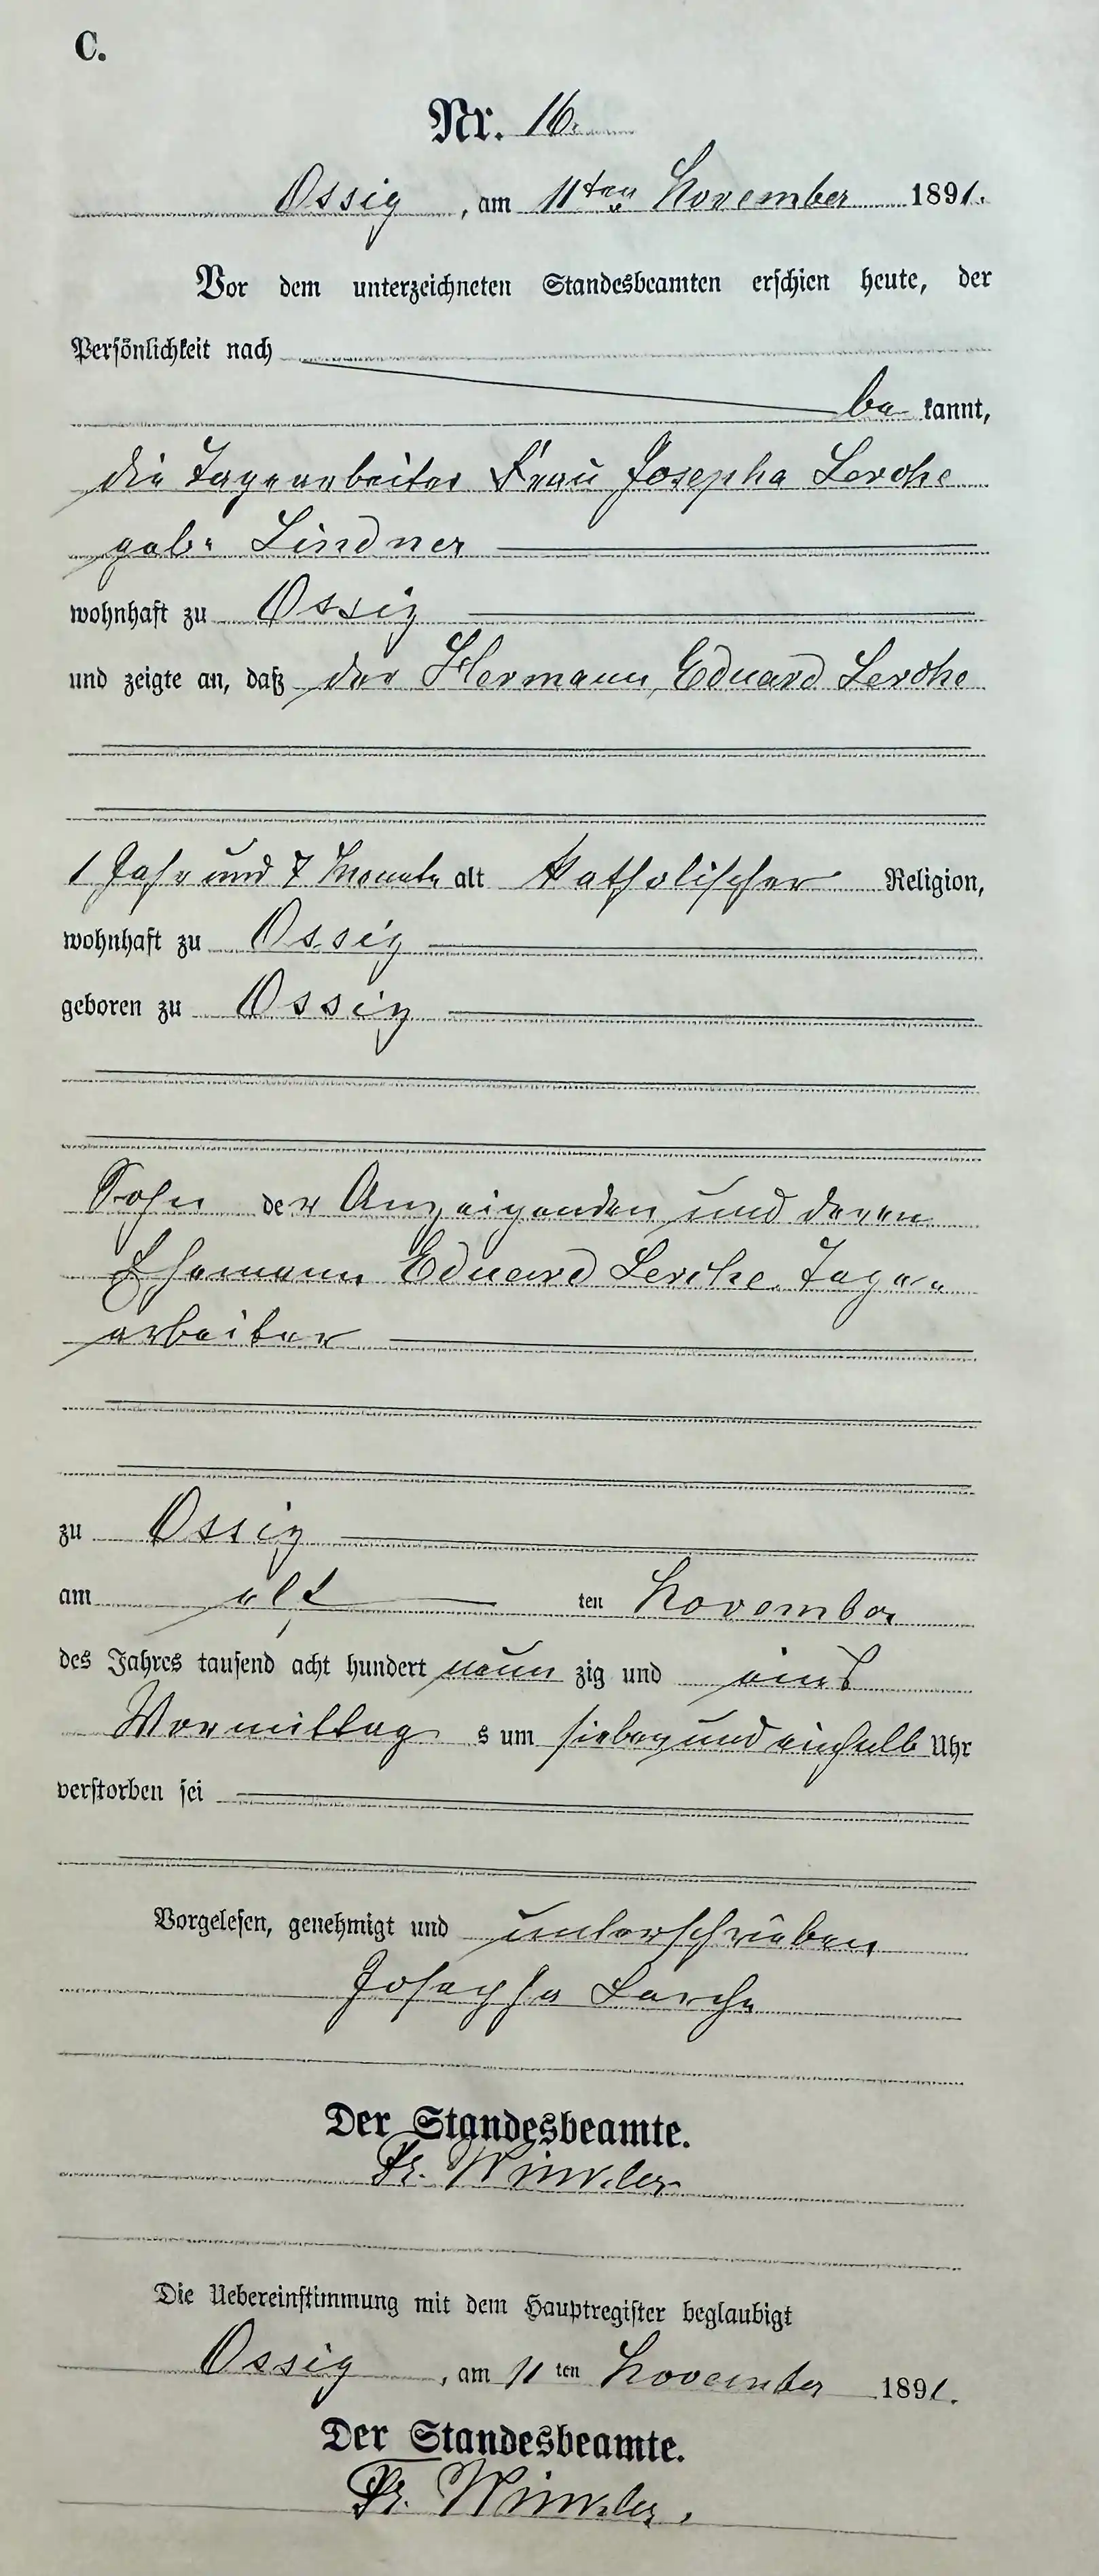 C.
Nr. 16.
Ossig, am 11ten November 1891.
Vor dem unterzeichneten Standesbeamten erschien heute, der
Persönlichkeit nach
be kannt,
die Tagearbeiter Frau Josepha Lerche
geb. Lindner
wohnhaft zu Ossig
und zeigte an, daß der Hermann, Eduard Lerche
1 Jahr und 7 Monate alt katholischer Religion,
wohnhaft zu Ossig
geboren zu Ossig
Sohn der Anzeigenden und deren
Ehemann Eduard Lerche Tage-
arbeiter
zu Ossig
am elf ten November
des Jahres tausend acht hundert neun zig und eins
Vormittag s um sieben und einhalb Uhr
verstorben sei
Vorgelesen, genehmigt und unterschrieben
Josepha Lerche
Der Standesbeamte.
Fr. Winkler
Die Uebereinstimmung mit dem Hauptregister beglaubigt
Ossig, am 11 ten November 1891.
Der Standesbeamte.
Fr. Winkler.